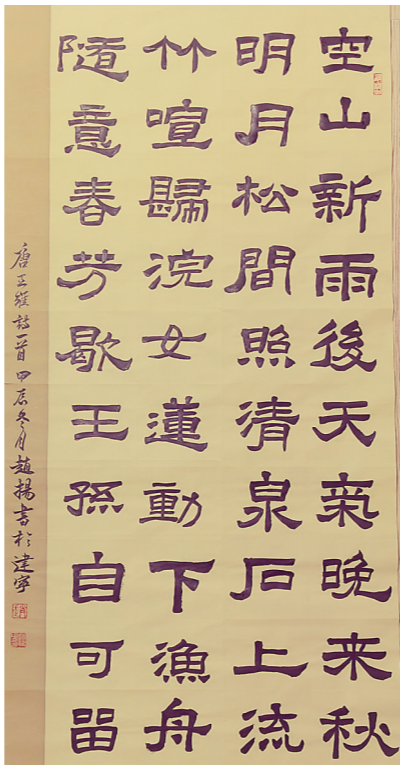 空山新雨後天氣晚来秋
明月松間照清泉石上流
竹喧歸浣女蓮動下漁舟
随意春芳歇王孫自可留
唐王維詩一首甲辰冬月趙揚書於建寧